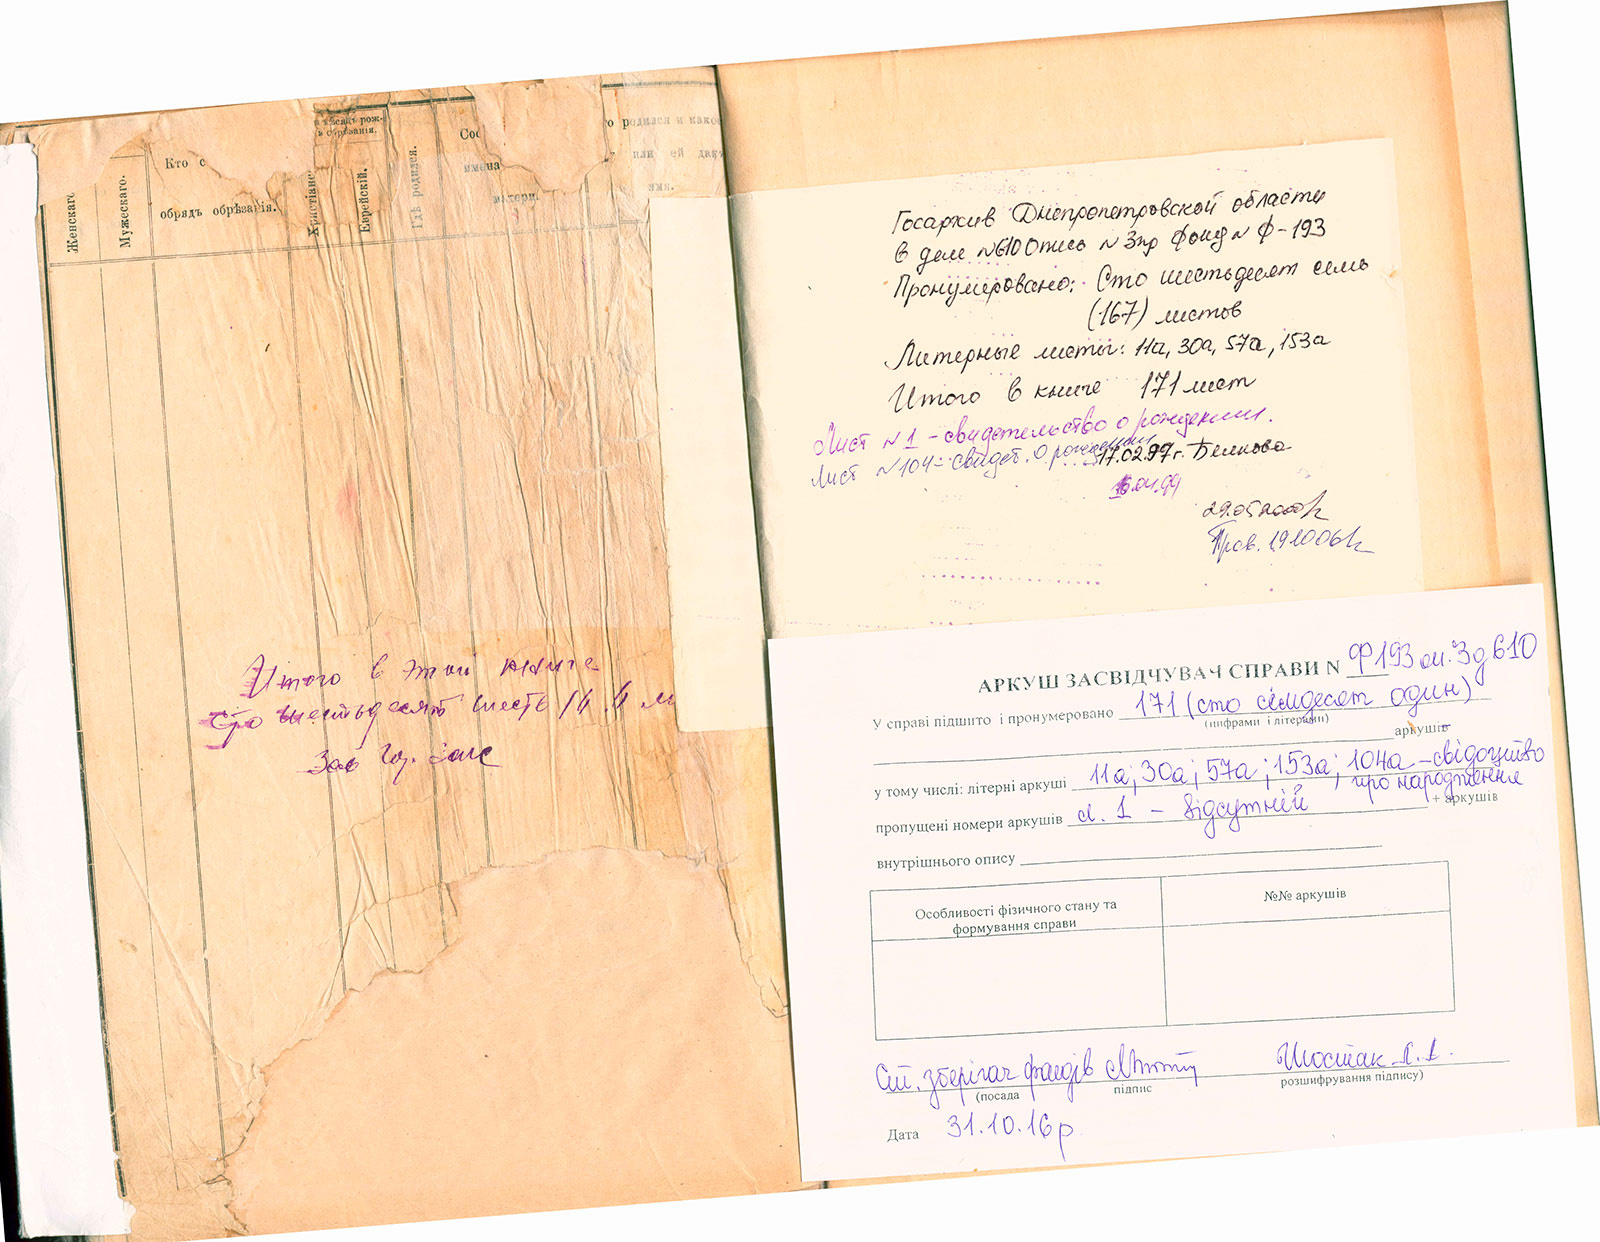 Женскаг
Мужескаго.
Кто с
обрядъ обрѣзанія.
рож-
обрѣзанія.
Христіанс
Еврейскій.
Гдѣ родился.
Сос
имена
матери.
родился и како
или ей дан
имя.
Итого в этой книге
сто шестьдесят шесть
Зав
Госархив Днепропетровской области
в деле №610 Опись №3пр Фонд № Ф-193
Пронумеровано: Сто шестьдесят семь
(167) листов
Литерные листы: 11а, 30а, 57а, 153а
Итого в книге 171 лист
Лист №1 - свидетельство о рождении.
Лист №104 - свидет. о рождении
17.02.97г. Белкова
16.04.99
29.05.2000
Пров. 191006
АРКУШ ЗАСВІДЧУВАЧ СПРАВИ N Ф193 оп.3 д 610
У справі підшито і пронумеровано 171 (сто сімдесят один)
(цифрами і літерами)
аркушів
у тому числі: літерні аркуші 11а; 30а; 57а; 153а; 104а - свідоцтво
про народження
пропущені номери аркушів л. 1 - відсутній + аркушів
внутрішнього опису
Особливості фізичного стану та
формування справи
№№ аркушів
Ст. зберігач фондів Шостак Л.І.
(посада підпис розшифрування підпису)
Дата 31.10.16р